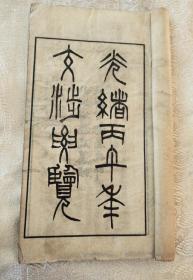 光緒丙午年
文法要覽